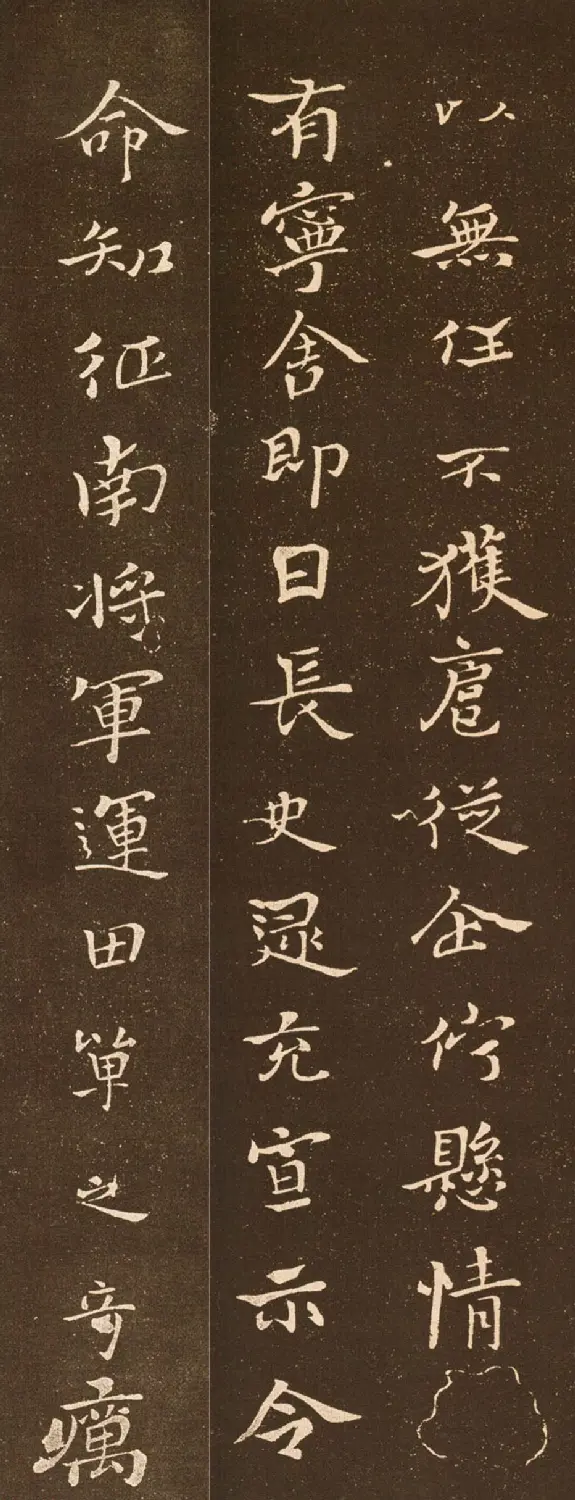 以無任不獲扈從企佇懸情
有寧舍即日長史逯充宣示令
命知征南將軍運田單之奇厲